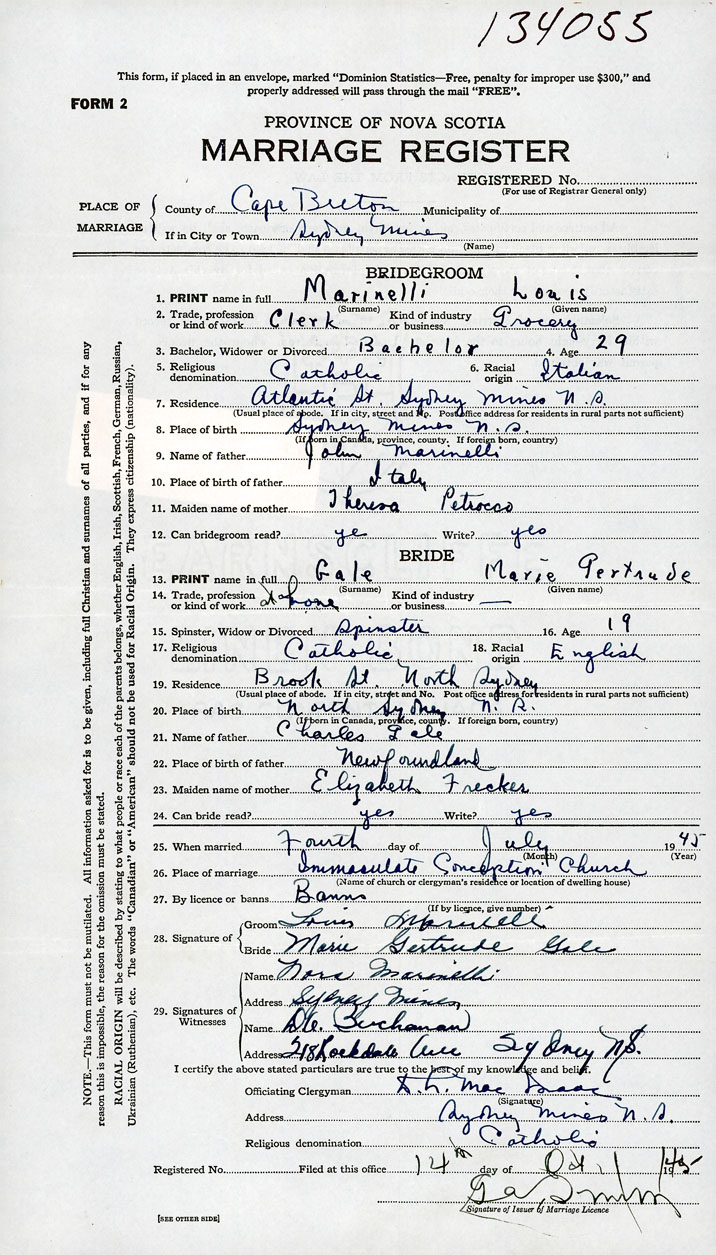 134055
This form, if placed in an envelope, marked "Dominion Statistics—Free, penalty for improper use $300," and
properly addressed will pass through the mail "FREE".
FORM 2
PROVINCE OF NOVA SCOTIA
MARRIAGE REGISTER
REGISTERED No.
(For use of Registrar General only)
PLACE OF MARRIAGE
County of Cape Breton Municipality of
If in City or Town Sydney Mines
(Name)
BRIDEGROOM
1. PRINT name in full Marinelli Louis
(Surname) (Given name)
2. Trade, profession or kind of work Clerk Kind of industry or business Grocery
3. Bachelor, Widower or Divorced Bachelor 4. Age 29
5. Religious denomination Catholic 6. Racial origin Italian
7. Residence Atlantic St. Sydney Mines N.S.
(Usual place of abode. If in city, street and No. Post office address for residents in rural parts not sufficient)
8. Place of birth Sydney Mines N.S.
(If born in Canada, province, county. If foreign born, country)
9. Name of father John Marinelli
10. Place of birth of father Italy
11. Maiden name of mother Theresa Petrocco
12. Can bridegroom read? yes Write? yes
BRIDE
13. PRINT name in full Gale Marie Gertrude
(Surname) (Given name)
14. Trade, profession or kind of work At home Kind of industry or business —
15. Spinster, Widow or Divorced Spinster 16. Age 19
17. Religious denomination Catholic 18. Racial origin English
19. Residence Brook St. North Sydney
(Usual place of abode. If in city, street and No. Post office address for residents in rural parts not sufficient)
20. Place of birth North Sydney N.S.
(If born in Canada, province, county. If foreign born, country)
21. Name of father Charles Gale
22. Place of birth of father Newfoundland
23. Maiden name of mother Elizabeth Frecker
24. Can bride read? yes Write? yes
25. When married Fourth day of July 1945
(Month) (Year)
26. Place of marriage Immaculate Conception Church
(Name of church or clergyman's residence or location of dwelling house)
27. By licence or banns Banns
(If by licence, give number)
28. Signature of
Groom Louis Marinelli
Bride Marie Gertrude Gale
29. Signatures of Witnesses
Name Nora Marinelli
Address Sydney Mines
Name Buchanan
Address 218 Rockdale Ave Sydney NS.
I certify the above stated particulars are true to the best of my knowledge and belief.
Officiating Clergyman Mac Isaac
(Signature)
Address Sydney Mines N.S.
Religious denomination Catholic
Registered No. Filed at this office 14th day of Oct. 1945
Signature of Issuer of Marriage Licence
[SEE OTHER SIDE]
NOTE.—This form must not be mutilated. All information asked for is to be given, including full Christian and surnames of all parties, and if for any
reason this is impossible, the reason for the omission must be stated.
RACIAL ORIGIN will be described by stating to what people or race each of the parents belongs, whether English, Irish, Scottish, French, German, Russian,
Ukrainian (Ruthenian), etc. The words "Canadian" or "American" should not be used for Racial Origin. They express citizenship (nationality).